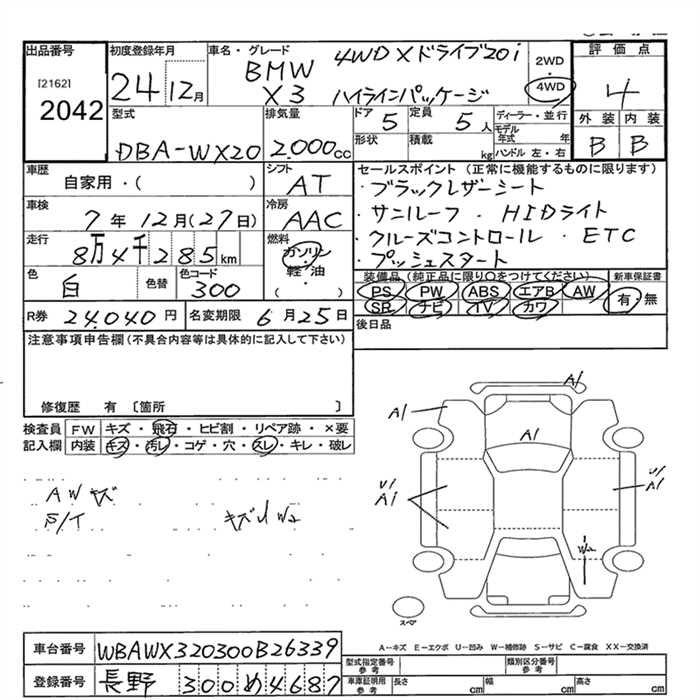 出品番号 初度登録年月 車名・グレード 評価点
[2162] 2042
24 12月
BMW 4WD Xドライブ20i
X3 ハイラインパッケージ
2WD
4WD
4
外装 内装
B B
型式 排気量 ドア 定員 ディーラー・並行
DBA-WX20 2.000cc 5 5人
形状 積載 kg
モデル年式 年
ハンドル 左・右
車歴 シフト セールスポイント (正常に機能するものに限ります)
自家用・( ) AT
・ブラックレザーシート
車検 冷房
7年12月(27日) AAC
・サンルーフ ・HIDライト
走行 燃料
8万4千285km ガソリン
・クルーズコントロール ・ETC
・プッシュスタート
色 色替 色コード 軽・油
白 300 ( )
装備品(純正品に限り○をつけてください) 新車保証書
PS PW ABS エアB AW 有・無
SR ナビ TV カワ
R券 24.040円 名変期限 6月25日
後日品
注意事項申告欄(不具合内容等は具体的に記入して下さい)
修復歴 有 〔箇所 〕
検査員 FW キズ・飛石・ヒビ割・リペア跡・×要
記入欄 内装 キズ・汚レ・コゲ・穴・スレ・キレ・破レ
AWキズ
A1
A1
A1
U/
A1
U/
A1
W2
スペア
A-キズ E-エクボ U-凹み W-補修跡 S-サビ C-腐食 XX-交換済
車台番号 WBAWX320300B26339
登録番号 長野 300 め 4687
型式指定番号 参考 類別区分番号 参考
車庫証明用 参考 長さ cm 幅 cm 高さ cm